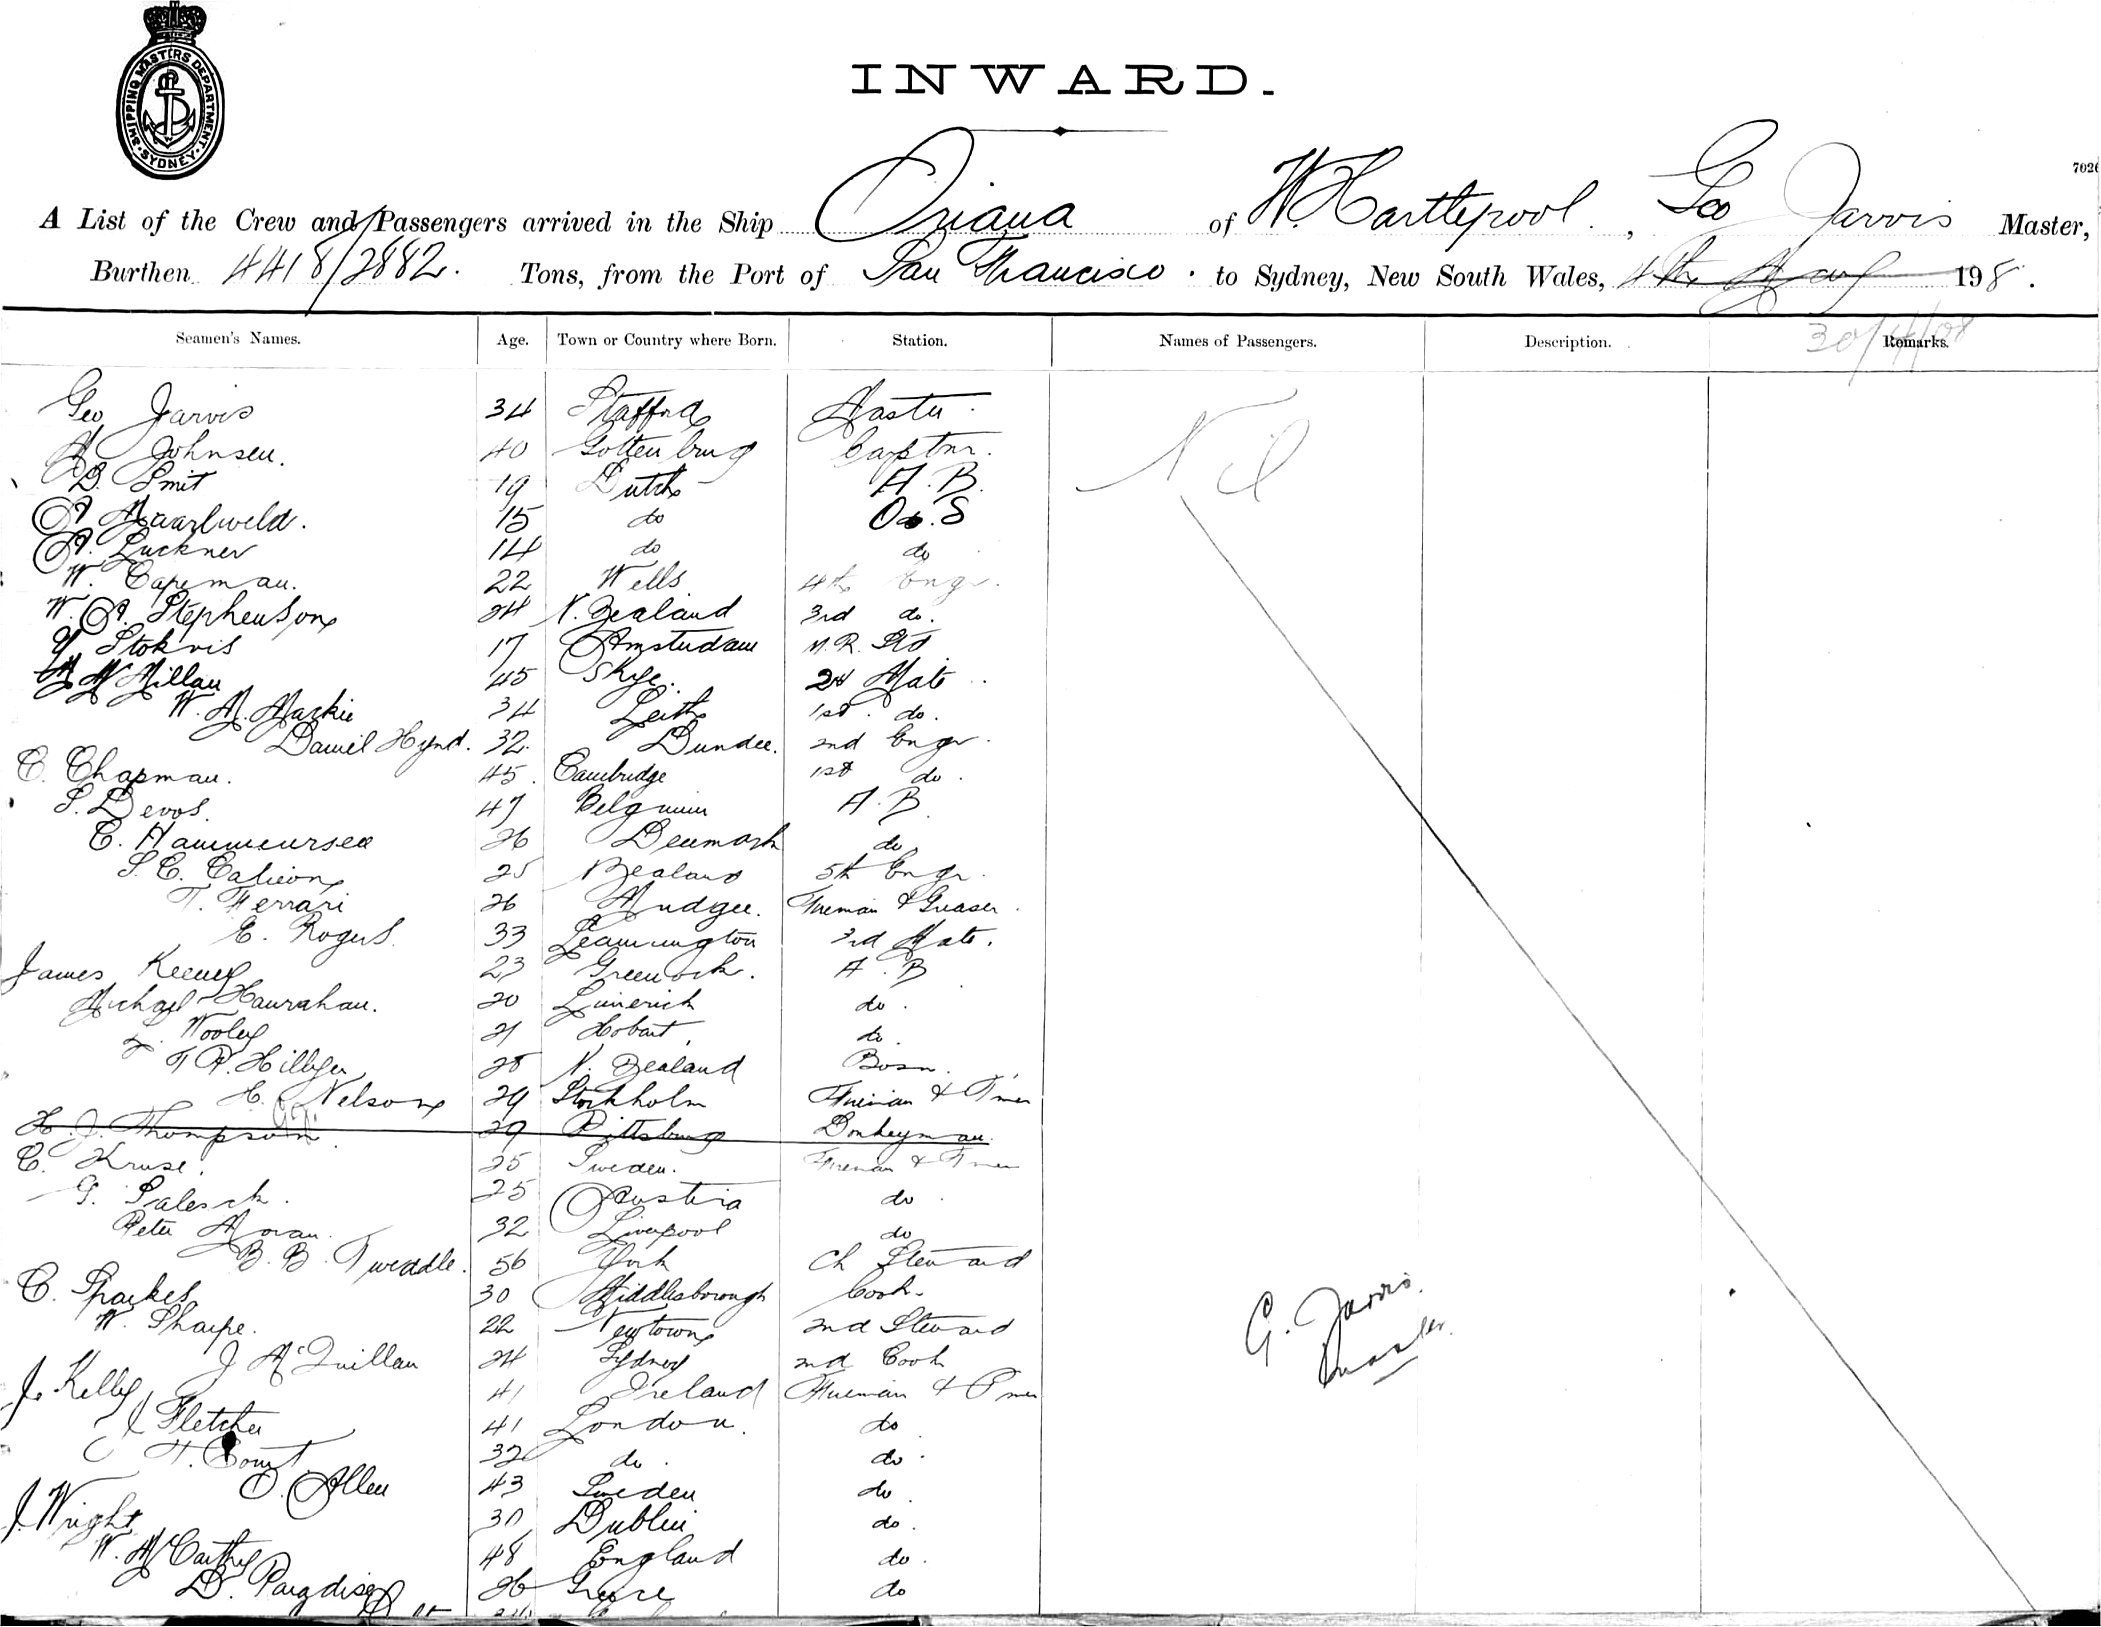 SHIPPING MASTERS DEPARTMENT · SYDNEY ·
INWARD.
7026
A List of the Crew and Passengers arrived in the Ship Oriana of W. Hartlepool, Geo Jarvis Master,
Burthen 4418/2882. Tons, from the Port of San Francisco. to Sydney, New South Wales, 4th May 1908.
Seamen's Names. Age. Town or Country where Born. Station. Names of Passengers. Description. Remarks.
30/4/08
Geo Jarvis 34 Stafford Master. Nil
Johnsen. 40 Gottenburg Carptnr.
D. Smit 19 Dutch A.B.
A Haarlweld. 15 do O.S
A. Luckner 14 do do
W. Capeman. 22 Wells 4th Engr.
W. A. Stephenson 24 N. Zealand 3rd do.
Stokvis 17 Amsterdam M.R. Std
McMillan 45 Skye. 2d Mate
W. M. Mackie 34 Leith 1st do.
Daniel Hynd. 32. Dundee. 2nd Engr.
C. Chapman. 45. Cambridge 1st do.
S. Devos. 47 Belgium A.B
C. Hammeursea 26 Denmark do
S. C. Calieon 25 Zealand 5th Engr.
T. Ferrari 26 Mudgee. Fireman & Greaser.
E. Rogers. 33 Leamington 3rd Mate.
James Keeney 23 Greenock. A.B
Michael Hanrahan. 20 Limerick do.
L. Wooley 21 Hobart do.
T R. Hillyer 28 N. Zealand Bosn.
H. Nelson 29 Stockholm Fireman & Tmer
H. J. Thompson. 29 Pittsburg Donkeyman.
C. Kruse. 25 Sweden. Fireman & Tmer
Salesch. 25 Austria do.
Peter Moran. 32 Liverpool do
B. B. Tweddle. 56 York Ch Steward
C. Sparkes 30 Middlesborough Cook.
W. Sharpe. 22 Newtown 2nd Steward
J McQuillan 24 Sydney 2nd Cook
J. Kelly 41 Ireland Fireman & Tmer
J Fletcher 41 London. do
T. Court 32 do. do.
O. Allen 43 Sweden do.
J. Wright 30 Dublin do.
W. McCarthy 48 England do.
D. Paradise 26 Greece do
G. Jarvis.
Master.